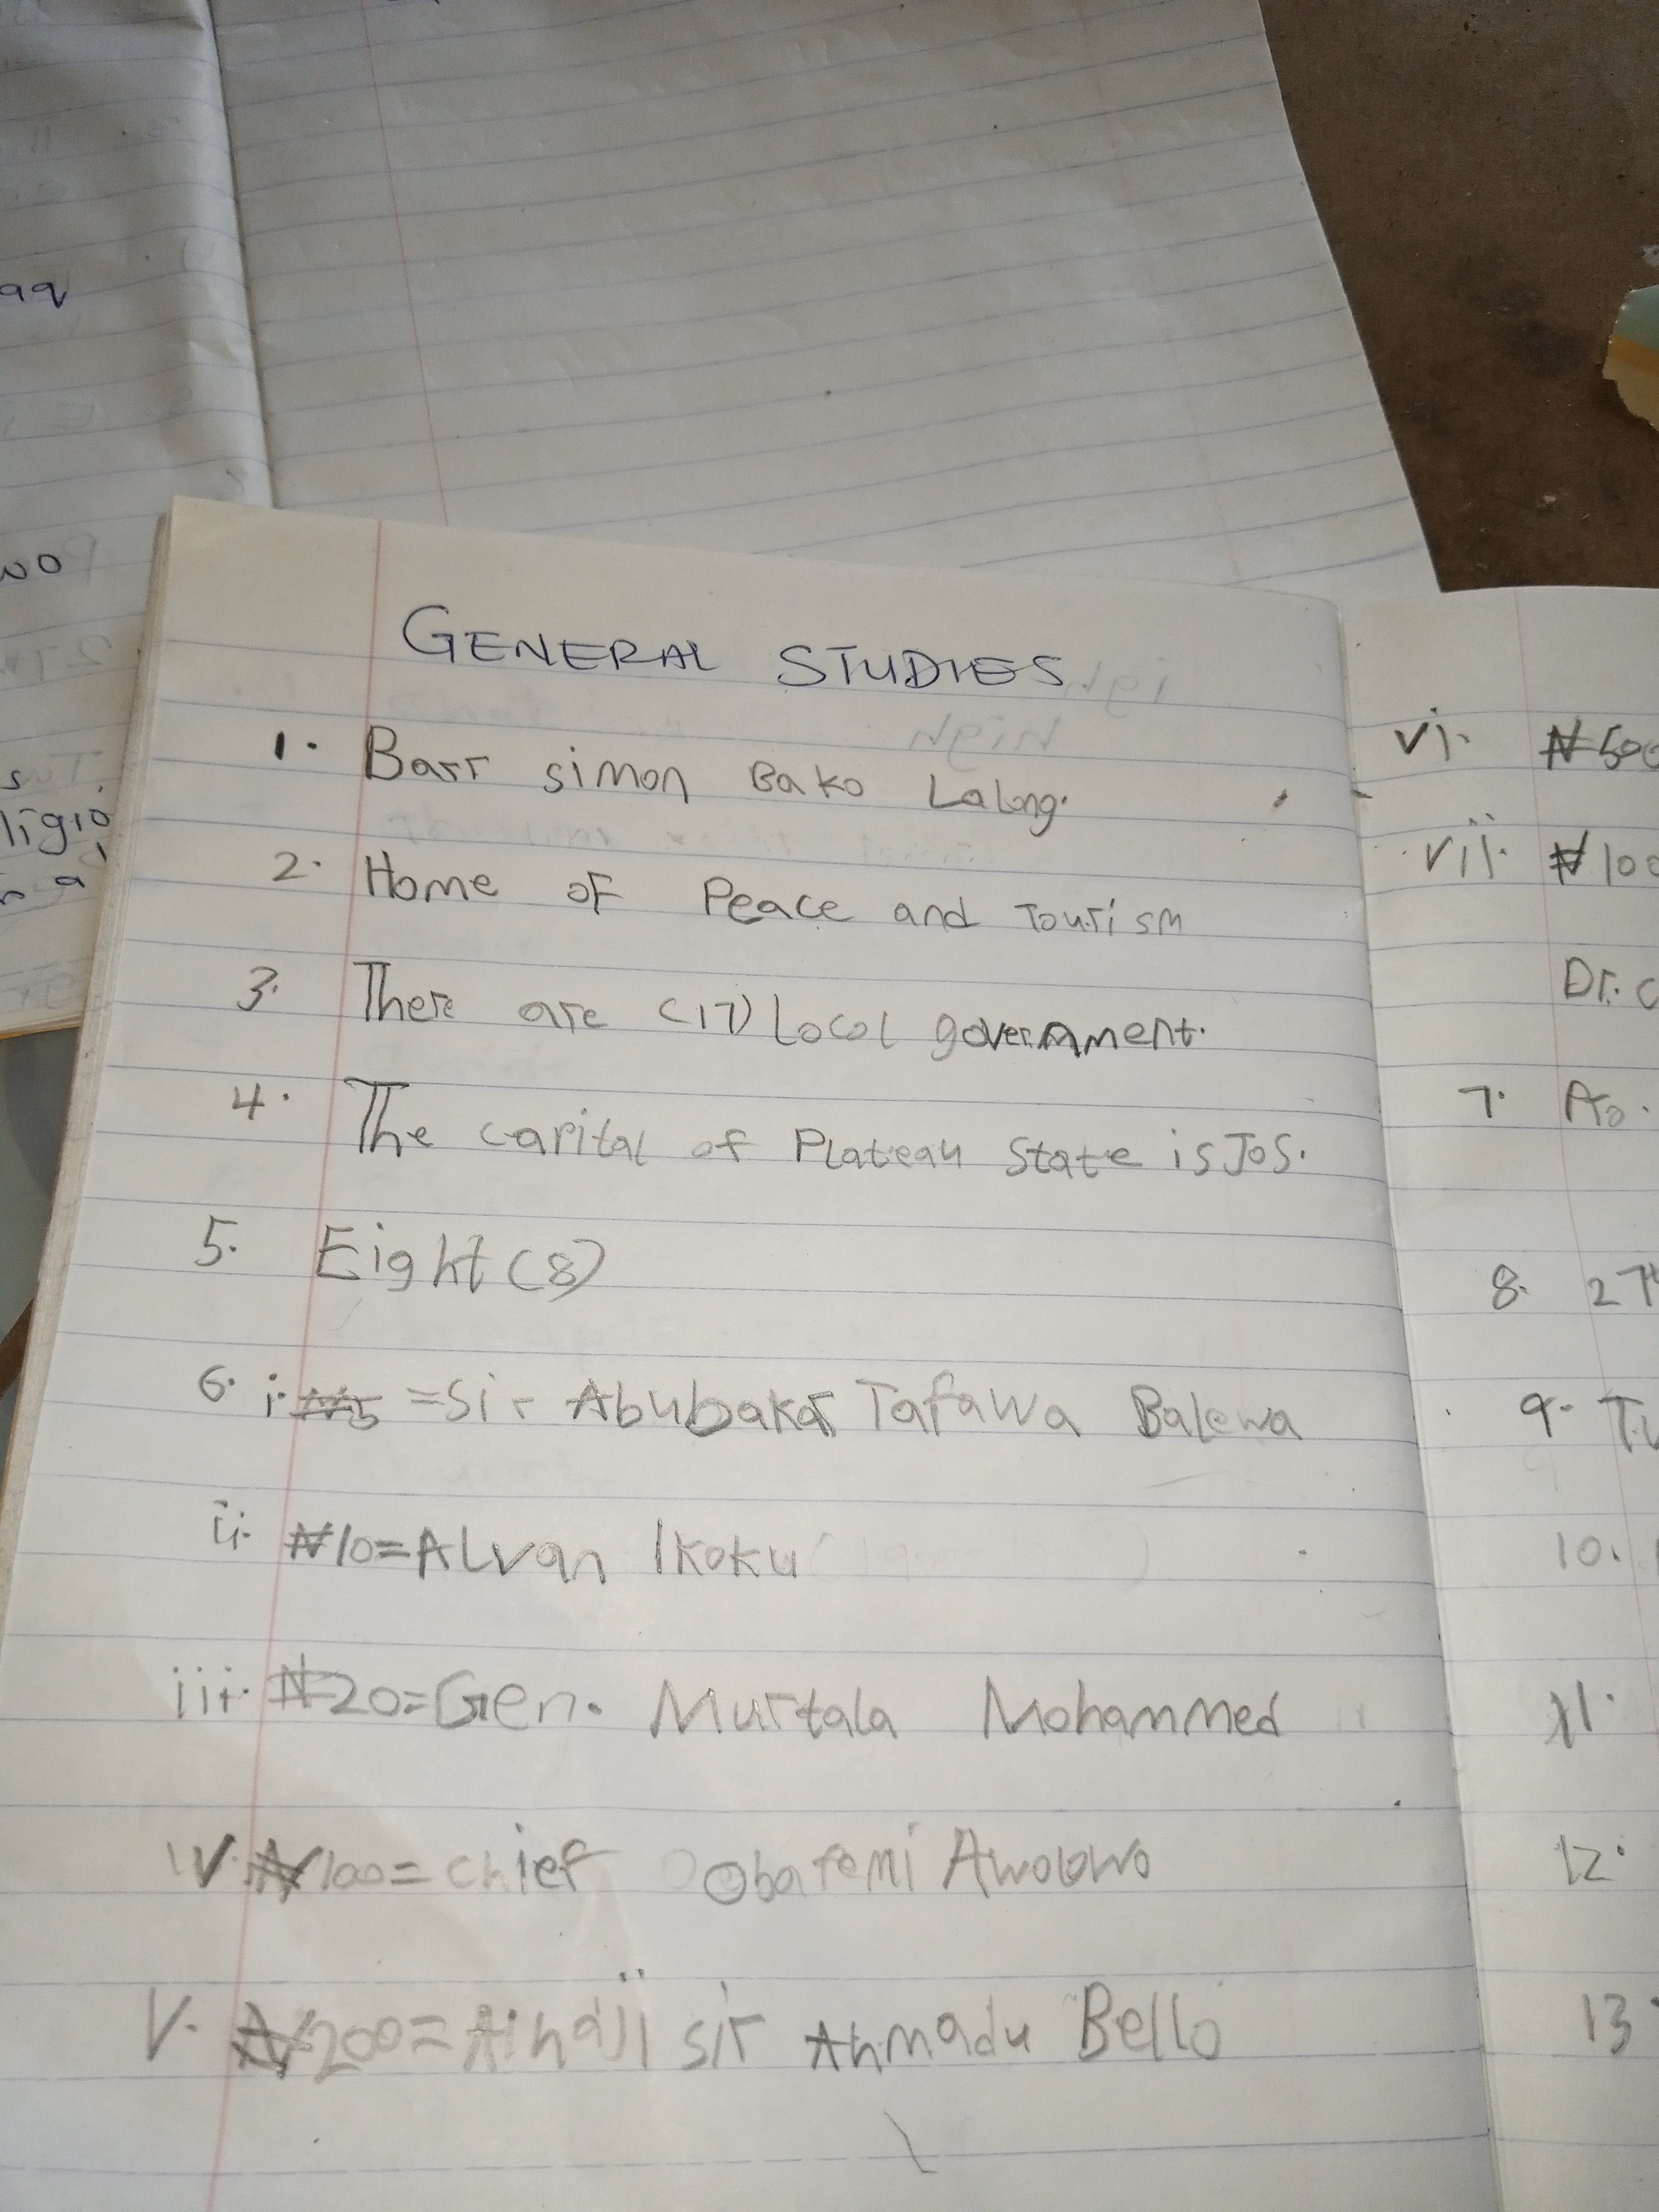 GENERAL STUDIES
1. Barr simon Bako Lalong.
2. Home of Peace and Tourism
3. There are (17) Local government.
4. The capital of Plateau State is JOS.
5. Eight (8)
6. i. ₦5 = Sir Abubakar Tafawa Balewa
ii. ₦10 = Alvan Ikoku
iii. ₦20 = Gen. Murtala Mohammed
iv. ₦100 = chief Obafemi Awolowo
v. ₦200 = Alhaji sir Ahmadu Bello
vi. ₦500
vii. ₦100
Dr. C
7. Ao.
8. 27th
9. Tu
10.
11.
12.
13.